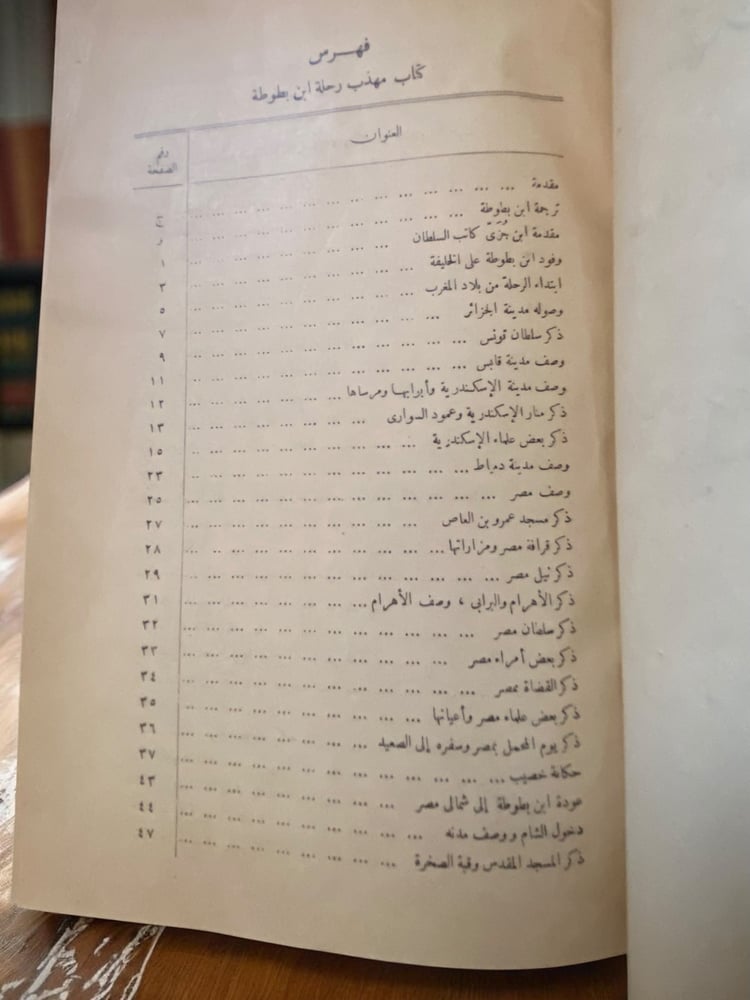 فهرس
كتاب مهذب رحلة ابن بطوطة
العنوان رقم الصفحة
مقدمة ... ج
ترجمة ابن بطوطة ... و
مقدمة ابن جُزَىّ كاتب السلطان ... ١
وفود ابن بطوطة على الخليفة ... ٣
ابتداء الرحلة من بلاد المغرب ... ٥
وصوله مدينة الجزائر ... ٧
ذكر سلطان تونس ... ٩
وصف مدينة قابس ... ١١
وصف مدينة الإسكندرية وأبوابها ومرساها ... ١٢
ذكر منار الإسكندرية وعمود السوارى ... ١٣
ذكر بعض علماء الإسكندرية ... ١٥
وصف مدينة دمياط ... ٢٣
وصف مصر ... ٢٥
ذكر مسجد عمرو بن العاص ... ٢٧
ذكر قرافة مصر ومزاراتها ... ٢٨
ذكر نيل مصر ... ٢٩
ذكر الأهرام والبرابي ، وصف الأهرام ... ٣١
ذكر سلطان مصر ... ٣٢
ذكر بعض أمراء مصر ... ٣٣
ذكر القضاة بمصر ... ٣٤
ذكر بعض علماء مصر وأعيانها ... ٣٥
ذكر يوم المحمل بمصر وسفره إلى الصعيد ... ٣٦
حكاية خصيب ... ٣٧
عودة ابن بطوطة إلى شمالى مصر ... ٤٣
دخول الشام ووصف مدنه ... ٤٤
ذكر المسجد المقدس وقبة الصخرة ... ٤٧